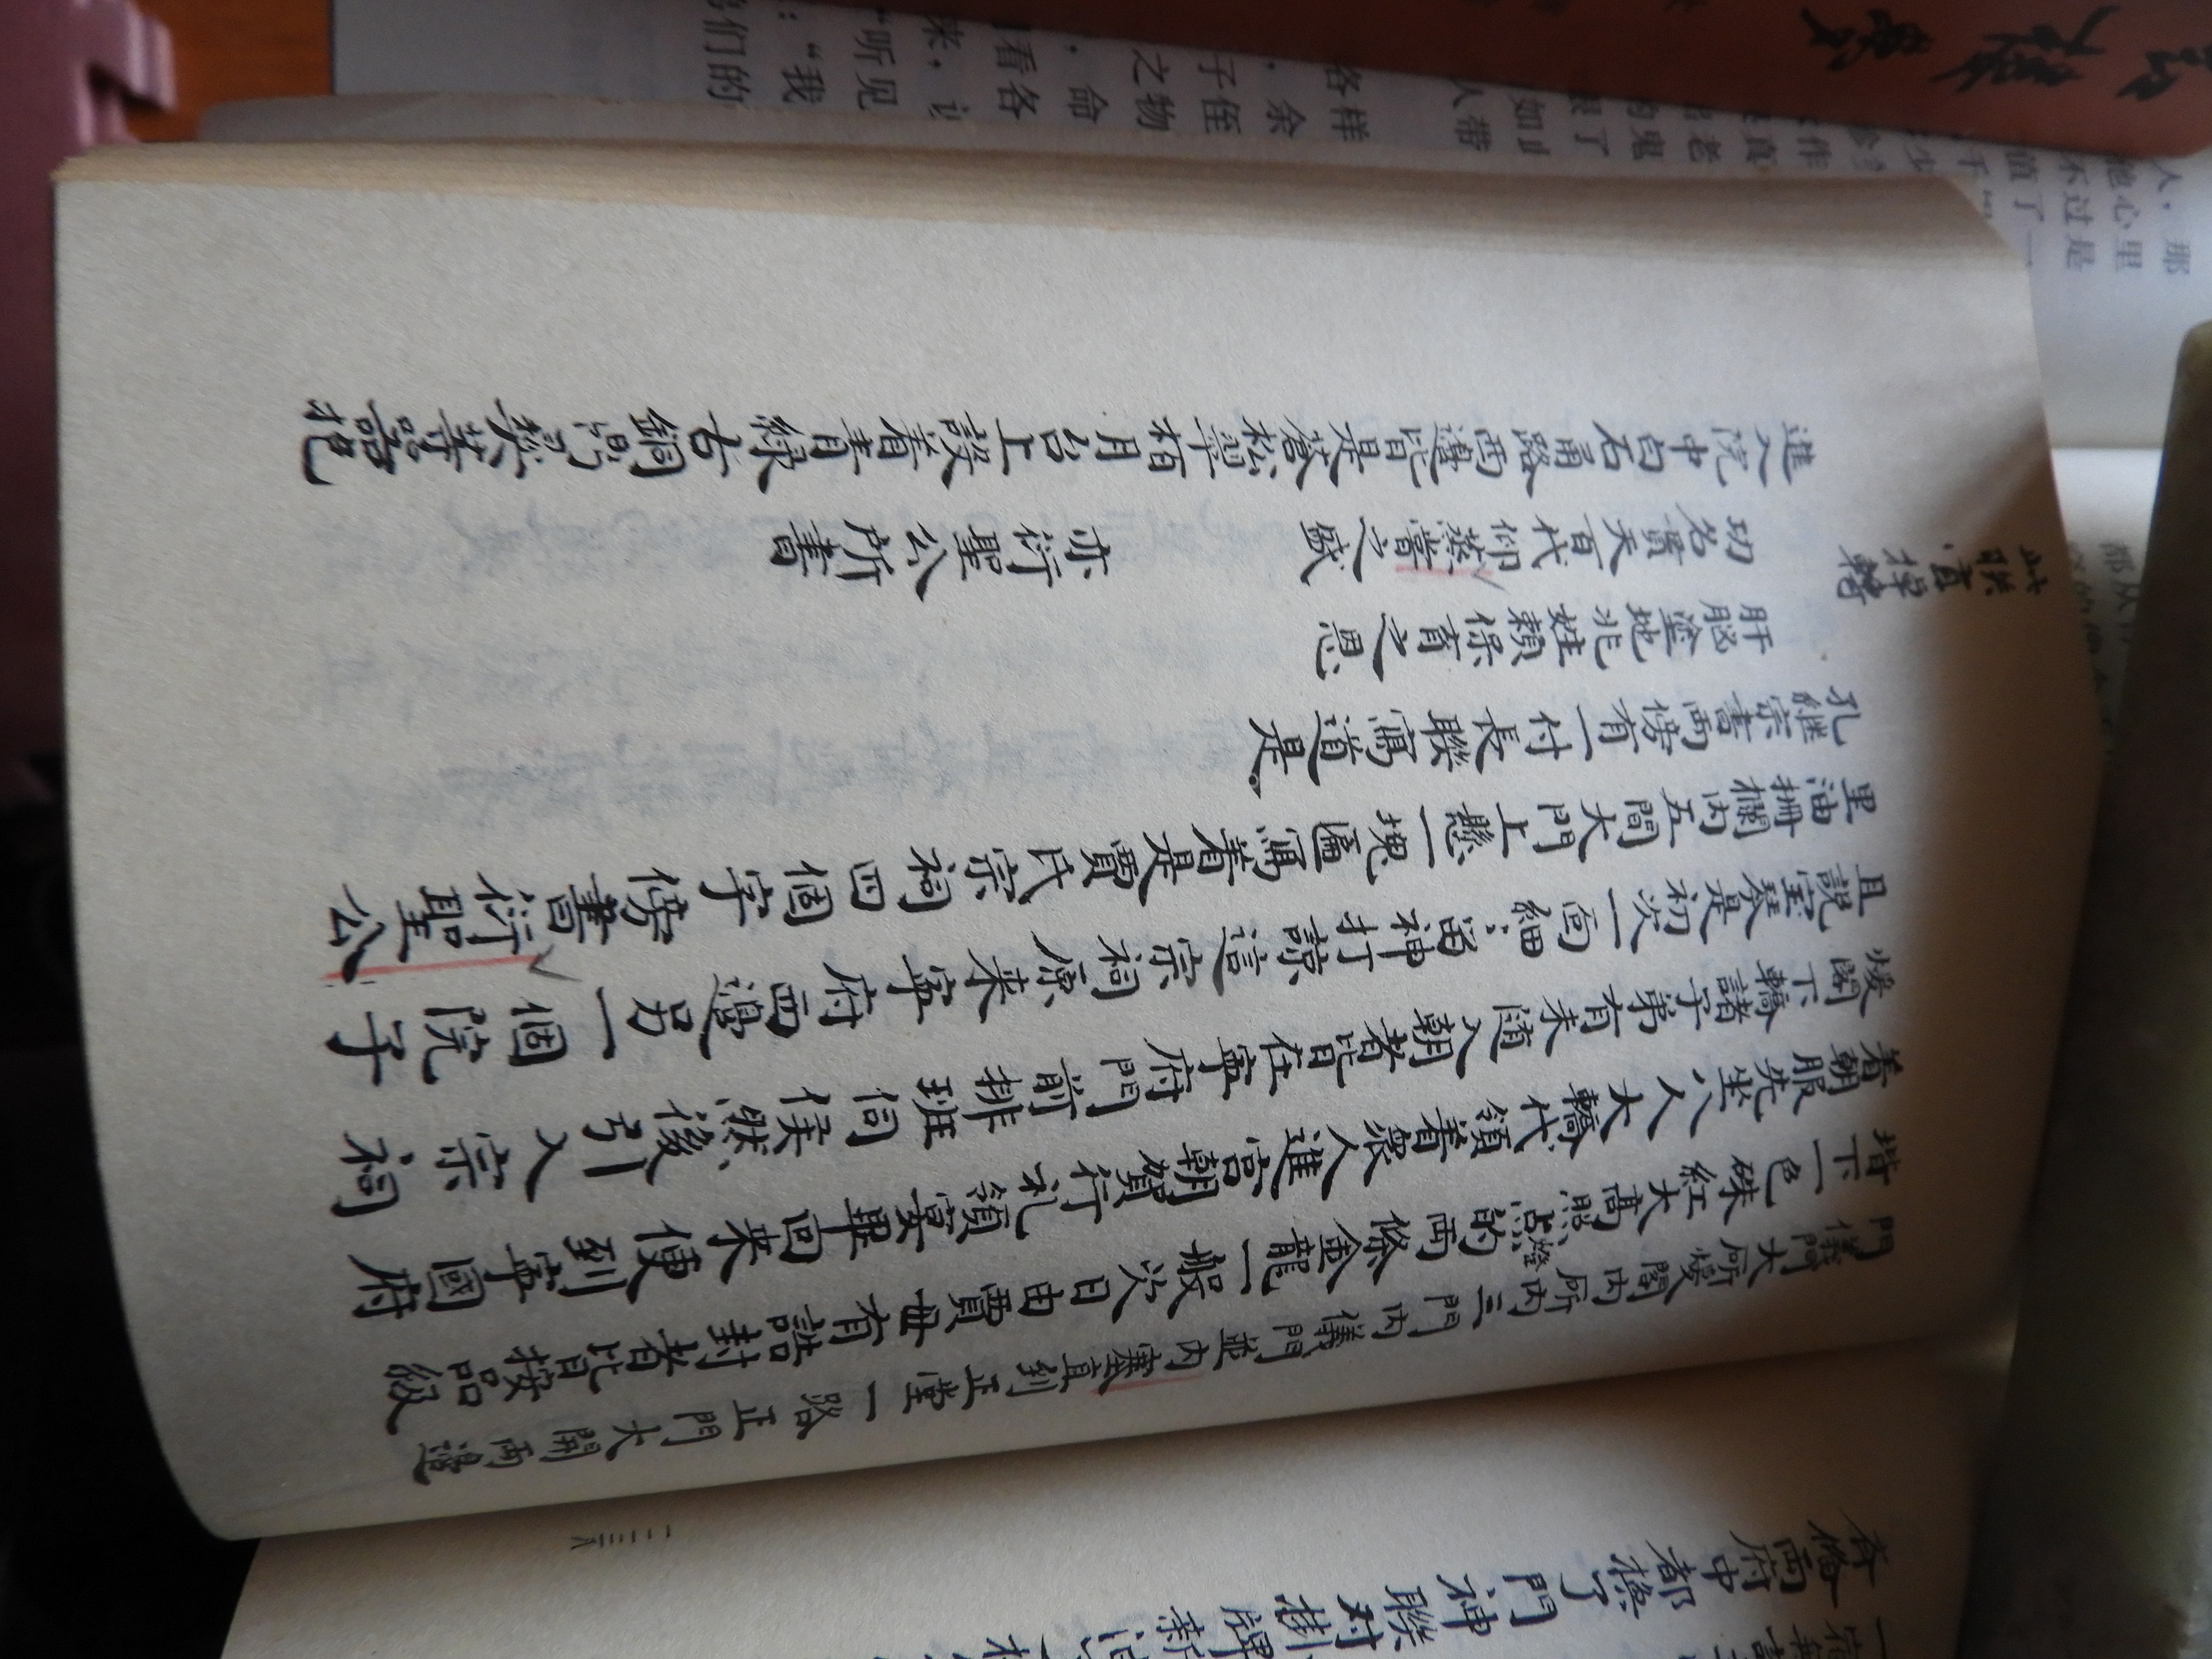 齊俻兩府中都換了門神聯对掛牌新油
一二三八
門儀門大所煖閣內所內三門內儀門並內塞直到正堂一路正門大開兩邊
堦下一色硃紅大高照燈点的兩條金龍一般次日由賈母有誥封者皆按品級
着朝服先坐八人大轎代領着眾人進宮朝賀行礼領宴畢回来便到寧國府
煖閣下轎諸子弟有未隨入朝者皆在寧府門前排班伺候然後引入宗祠
且說宝琴是初次一面細細留神打諒這宗祠原来寧府西邊另一個院子
里油柵欄內五間大門上懸一塊匾寫着是賈氏宗祠四個字傍書衍聖公
孔継宗書兩傍有一付長聯寫道是
肝脳塗地兆姓賴保育之恩
此聯宜掉轉
功名貫天百代仰蒸嘗之盛　亦衍聖公所書
進入院中白石甬路兩邊皆是蒼松翠柏月台上設着青綠古銅鼎彝等噐抱